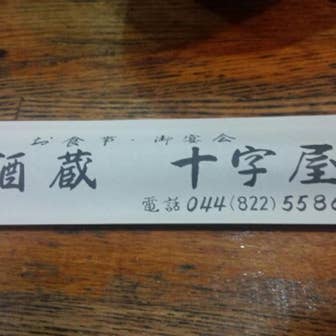 お食事・御宴会
酒蔵 十字屋
電話 044(822)5586